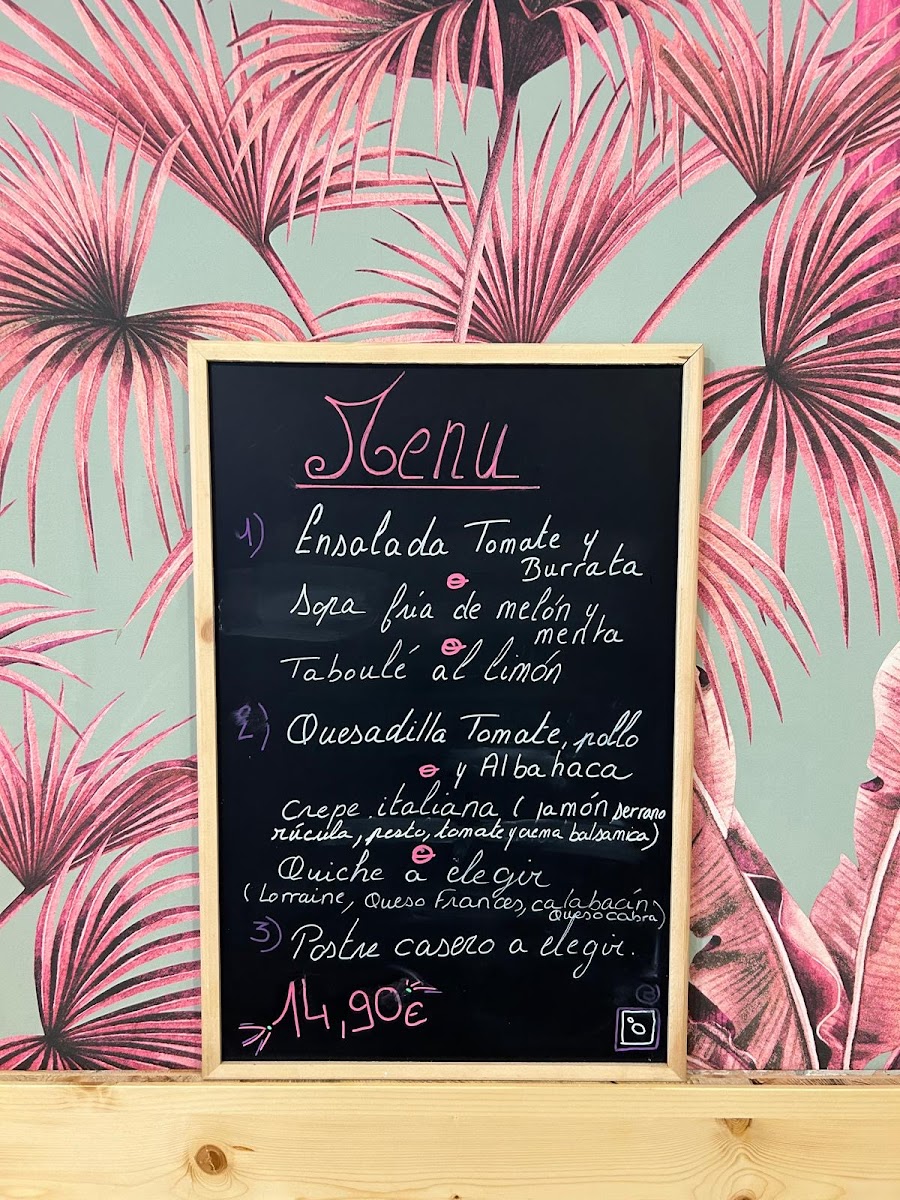 Menu
1) Ensalada Tomate y
Burrata
o
Sopa fría de melón y
menta
o
Taboulé al limón
2) Quesadilla Tomate, pollo
o y Albahaca
Crepe italiana ( jamón serrano
rúcula, pesto, tomate y crema balsamica)
o
Quiche a elegir
(Lorraine, Queso Frances, calabacín
Queso cabra)
3) Postre casero a elegir.
14,90€